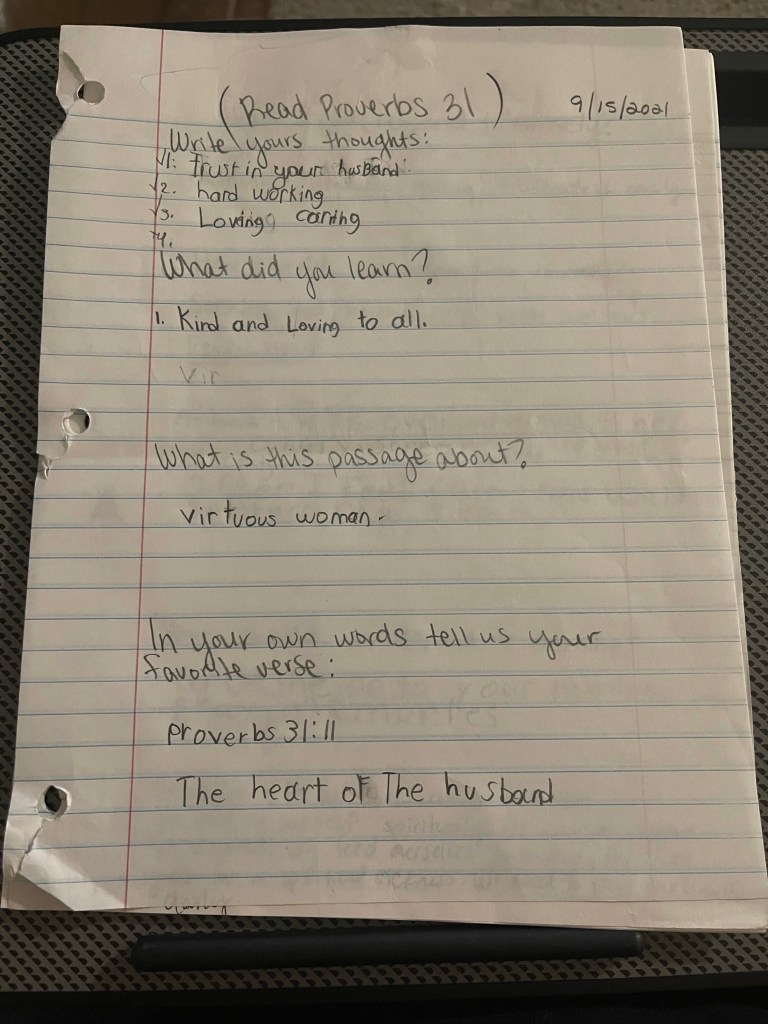 (Read Proverbs 31) 9/15/2021
Write yours thoughts:
1. Trust in your husband.
2. hard working
3. Loving, caring
4.
What did you learn?
1. Kind and Loving to all.
Vir
What is this passage about?
virtuous woman.
In your own words tell us your
favorite verse:
Proverbs 31:11
The heart of The husband